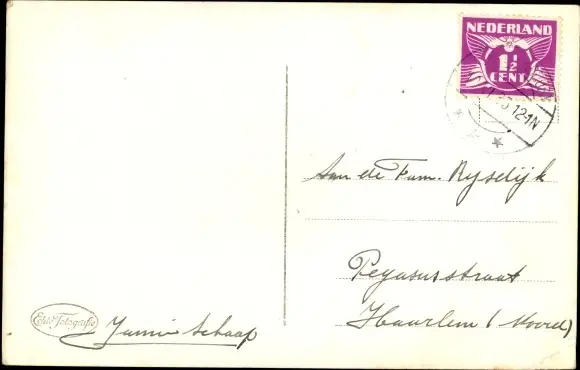 NEDERLAND
1½
CENT
12-1N
Aan de Fam. Ryselijk
Pegasusstraat
Haarlem (Noord)
Echte Fotografie
Jannie Schaap